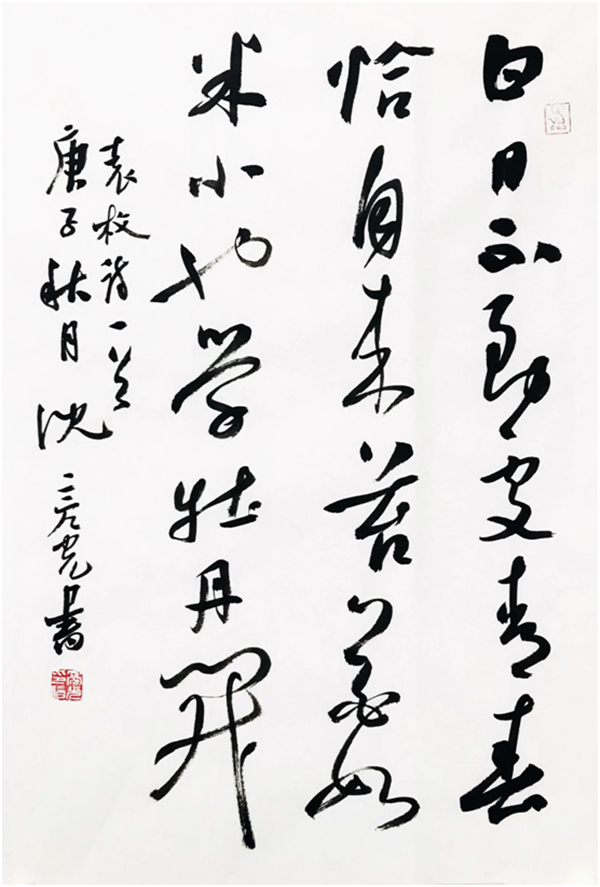 白日不到处青春
恰自来苔花如
米小也学牡丹開
袁枚诗一首
庚子秋月沈书